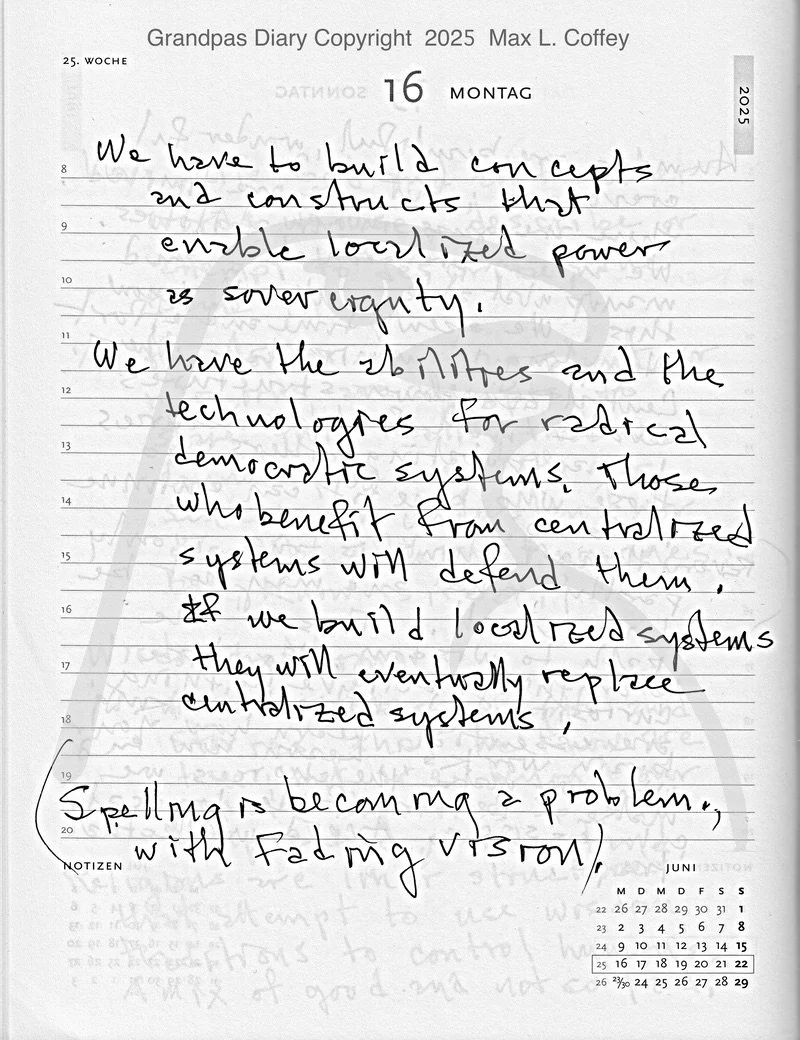 Grandpas Diary Copyright 2025 Max L. Coffey
25. WOCHE
16 MONTAG
2025
8 We have to build concepts
and constructs that
9 enable localized power
10 as soverergnty.
11 We have the abilities and the
12 technologies for radical
13 democratic systems. Those
14 who benefit from centralized
15 systems will defend them.
16 If we build localized systems
17 they will eventually replace
18 centralized systems.
19
(Spelling is becoming a problem.,
20 with fading vision).
NOTIZEN
JUNI
M D M D F S S
22 26 27 28 29 30 31 1
23 2 3 4 5 6 7 8
24 9 10 11 12 13 14 15
25 16 17 18 19 20 21 22
26 23/30 24 25 26 27 28 29